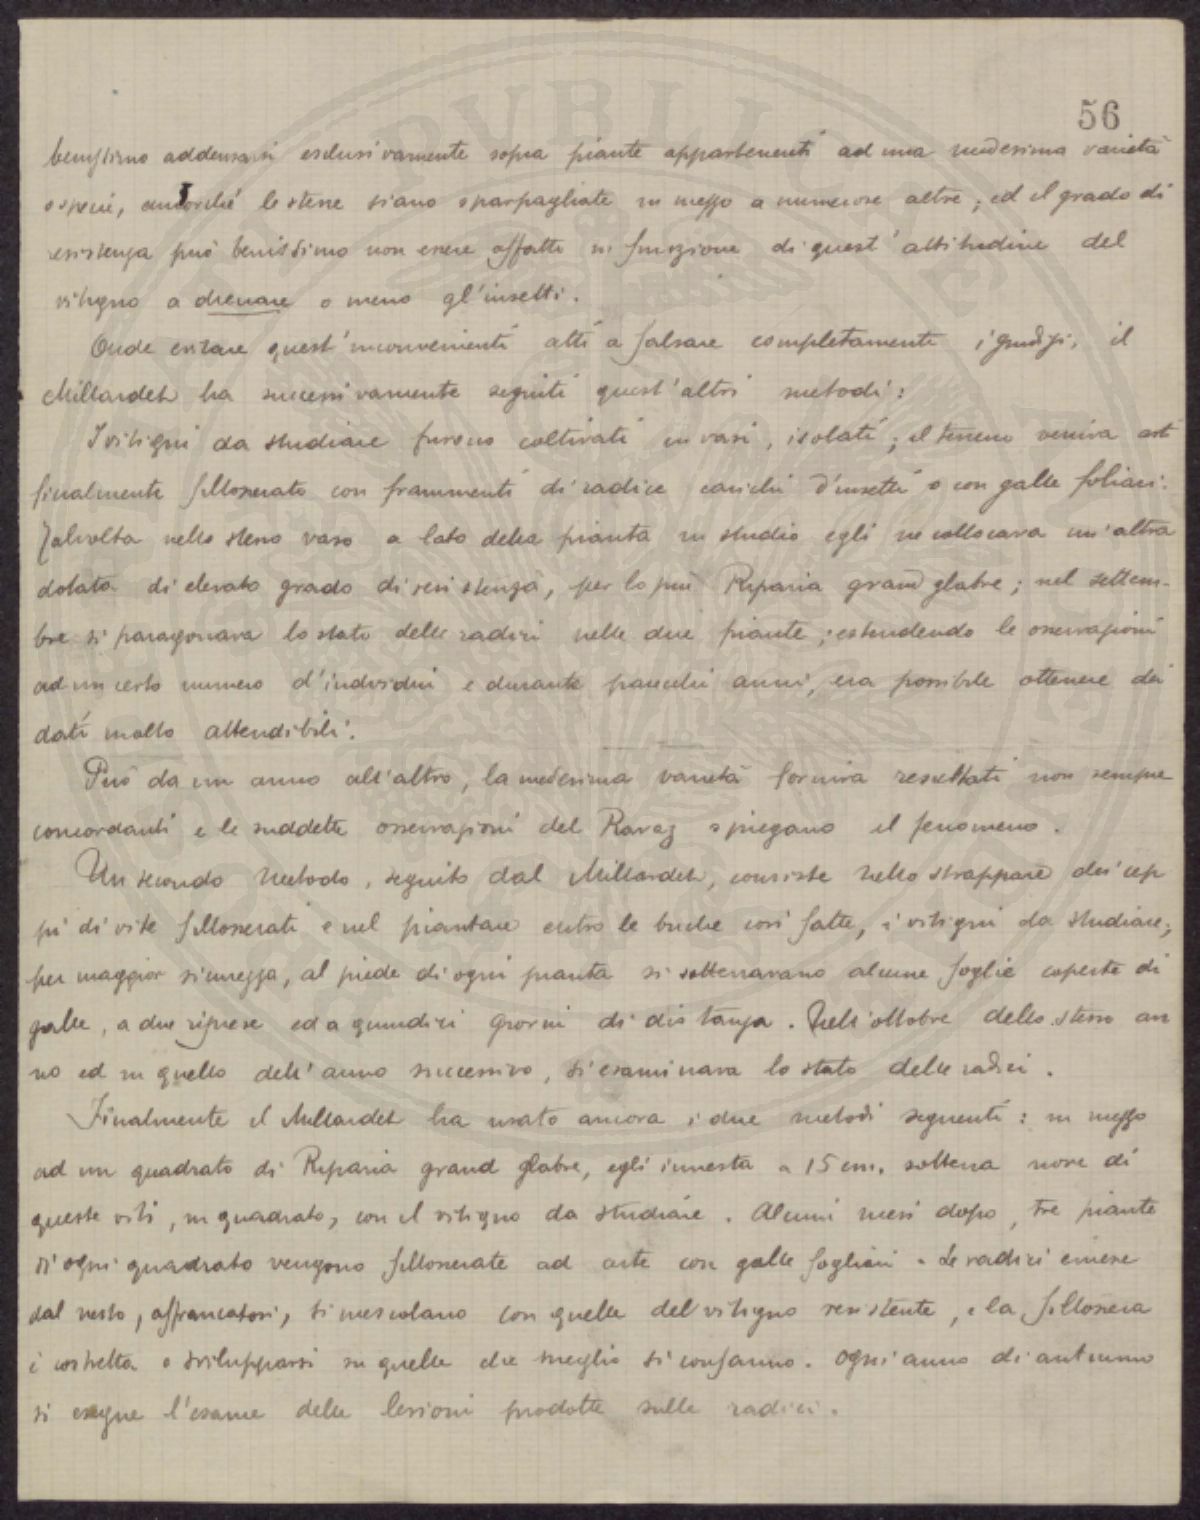 56
benissimo addensarsi esclusivamente sopra piante appartenenti ad una medesima varietà
o specie, ancorché le stesse siano sparpagliate in mezzo a numerose altre; ed il grado di
resistenza può benissimo non essere affatto in funzione di quest'attitudine del
vitigno a drenare o meno gl'insetti.
Onde evitare quest'inconvenienti atti a falsare completamente i giudizi, il
Millardet ha successivamente seguiti quest'altri metodi:
I vitigni da studiare furono coltivati in vasi, isolati; il terreno veniva arti
ficialmente fillosserato con frammenti di radice carichi d'insetti o con galle foliari.
Talvolta nello stesso vaso a lato della pianta in studio egli ne collocava un'altra
dotata di elevato grado di resistenza, per lo più Riparia grand glabre; nel settem-
bre si paragonava lo stato delle radici nelle due piante; estendendo le osservazioni
ad un certo numero d'individui e durante parecchi anni, era possibile ottenere dei
dati molto attendibili.
Però da un anno all'altro, la medesima varietà forniva resultati non sempre
concordanti e le suddette osservazioni del Ravaz spiegano il fenomeno.
Un secondo metodo, seguito dal Millardet, consiste nello strappare dei cep
pi di vite fillosserati e nel piantare entro le buche così fatte, i vitigni da studiare;
per maggior sicurezza, al piede di ogni pianta si sotterravano alcune foglie coperte di
galle, a due riprese ed a quindici giorni di distanza. Nell'ottobre dello stesso an
no ed in quello dell'anno successivo, si esaminava lo stato delle radici.
Finalmente il Millardet ha usato ancora i due metodi seguenti: in mezzo
ad un quadrato di Riparia grand glabre, egli innesta a 15 cm. sotterra nove di
queste viti, in quadrato, con il vitigno da studiare. Alcuni mesi dopo, tre piante
di ogni quadrato vengono fillosserate ad arte con galle fogliari. Le radici emesse
dal nesto, affrancatosi, si mescolano con quelle del vitigno resistente, e la fillossera
è costretta a svilupparsi su quelle che meglio si confanno. Ogni anno di autunno
si esegue l'esame delle lesioni prodotte sulle radici.